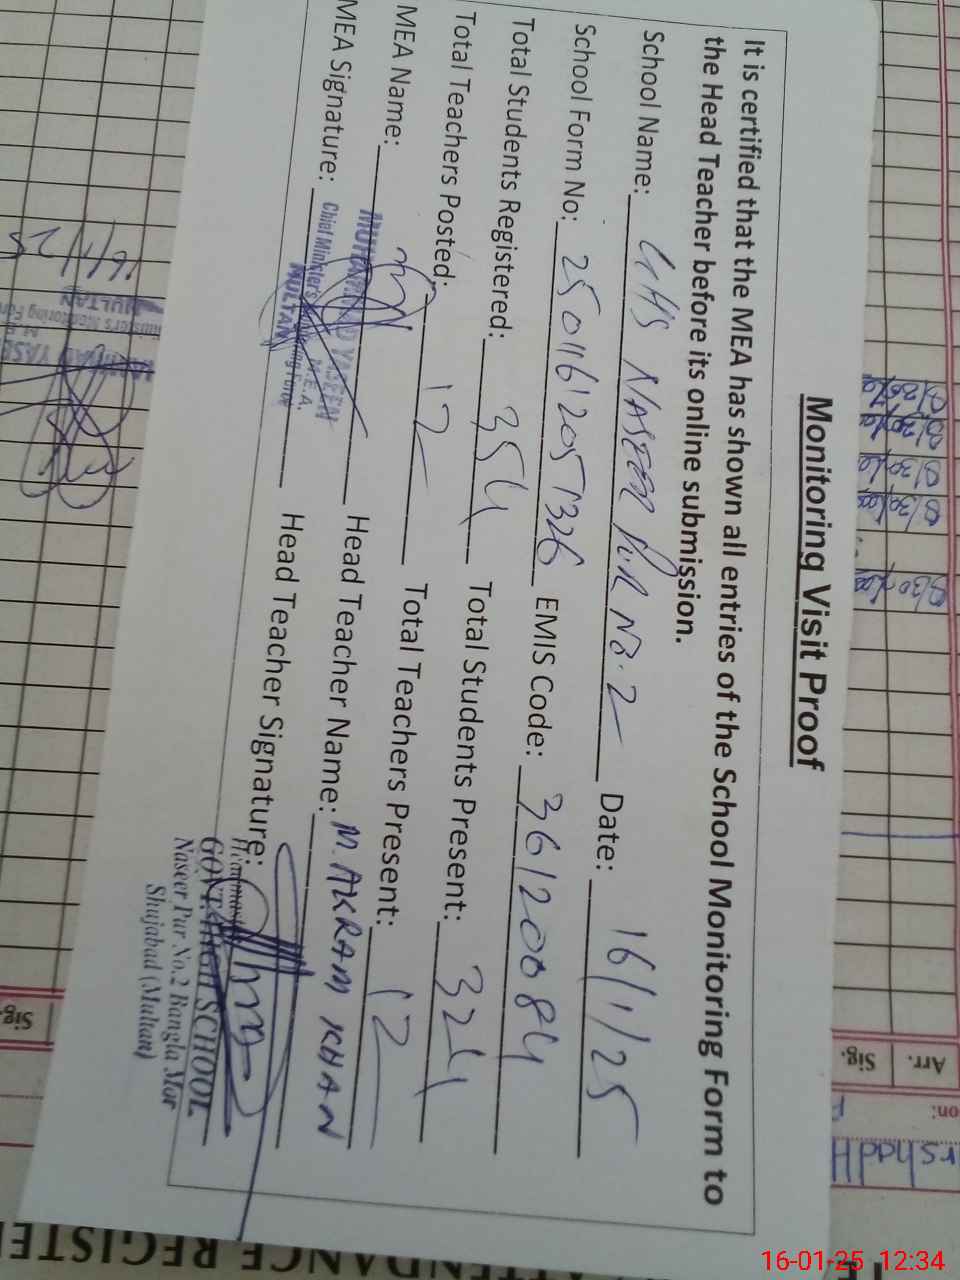 Monitoring Visit Proof
It is certified that the MEA has shown all entries of the School Monitoring Form to
the Head Teacher before its online submission.
School Name: GHS NASEER PUR NO. 2 Date: 16/1/25
School Form No: 250116120571326 EMIS Code: 36120084
Total Students Registered: 354 Total Students Present: 324
Total Teachers Posted: 12 Total Teachers Present: 12
MEA Name: Head Teacher Name: M. AKRAM KHAN
MEA Signature: Head Teacher Signature:
MUHAMMAD YASEEN
M.E.A.
Chief Ministers Monitoring Force
MULTAN
Headmaster
GOVT. HIGH SCHOOL
Naseer Pur No.2 Bangla Mor
Shujabad (Multan)
16/1/25
MULTAN
Arr. Sig.
Sig.
ATTENDANCE REGISTE
16-01-25 12:34